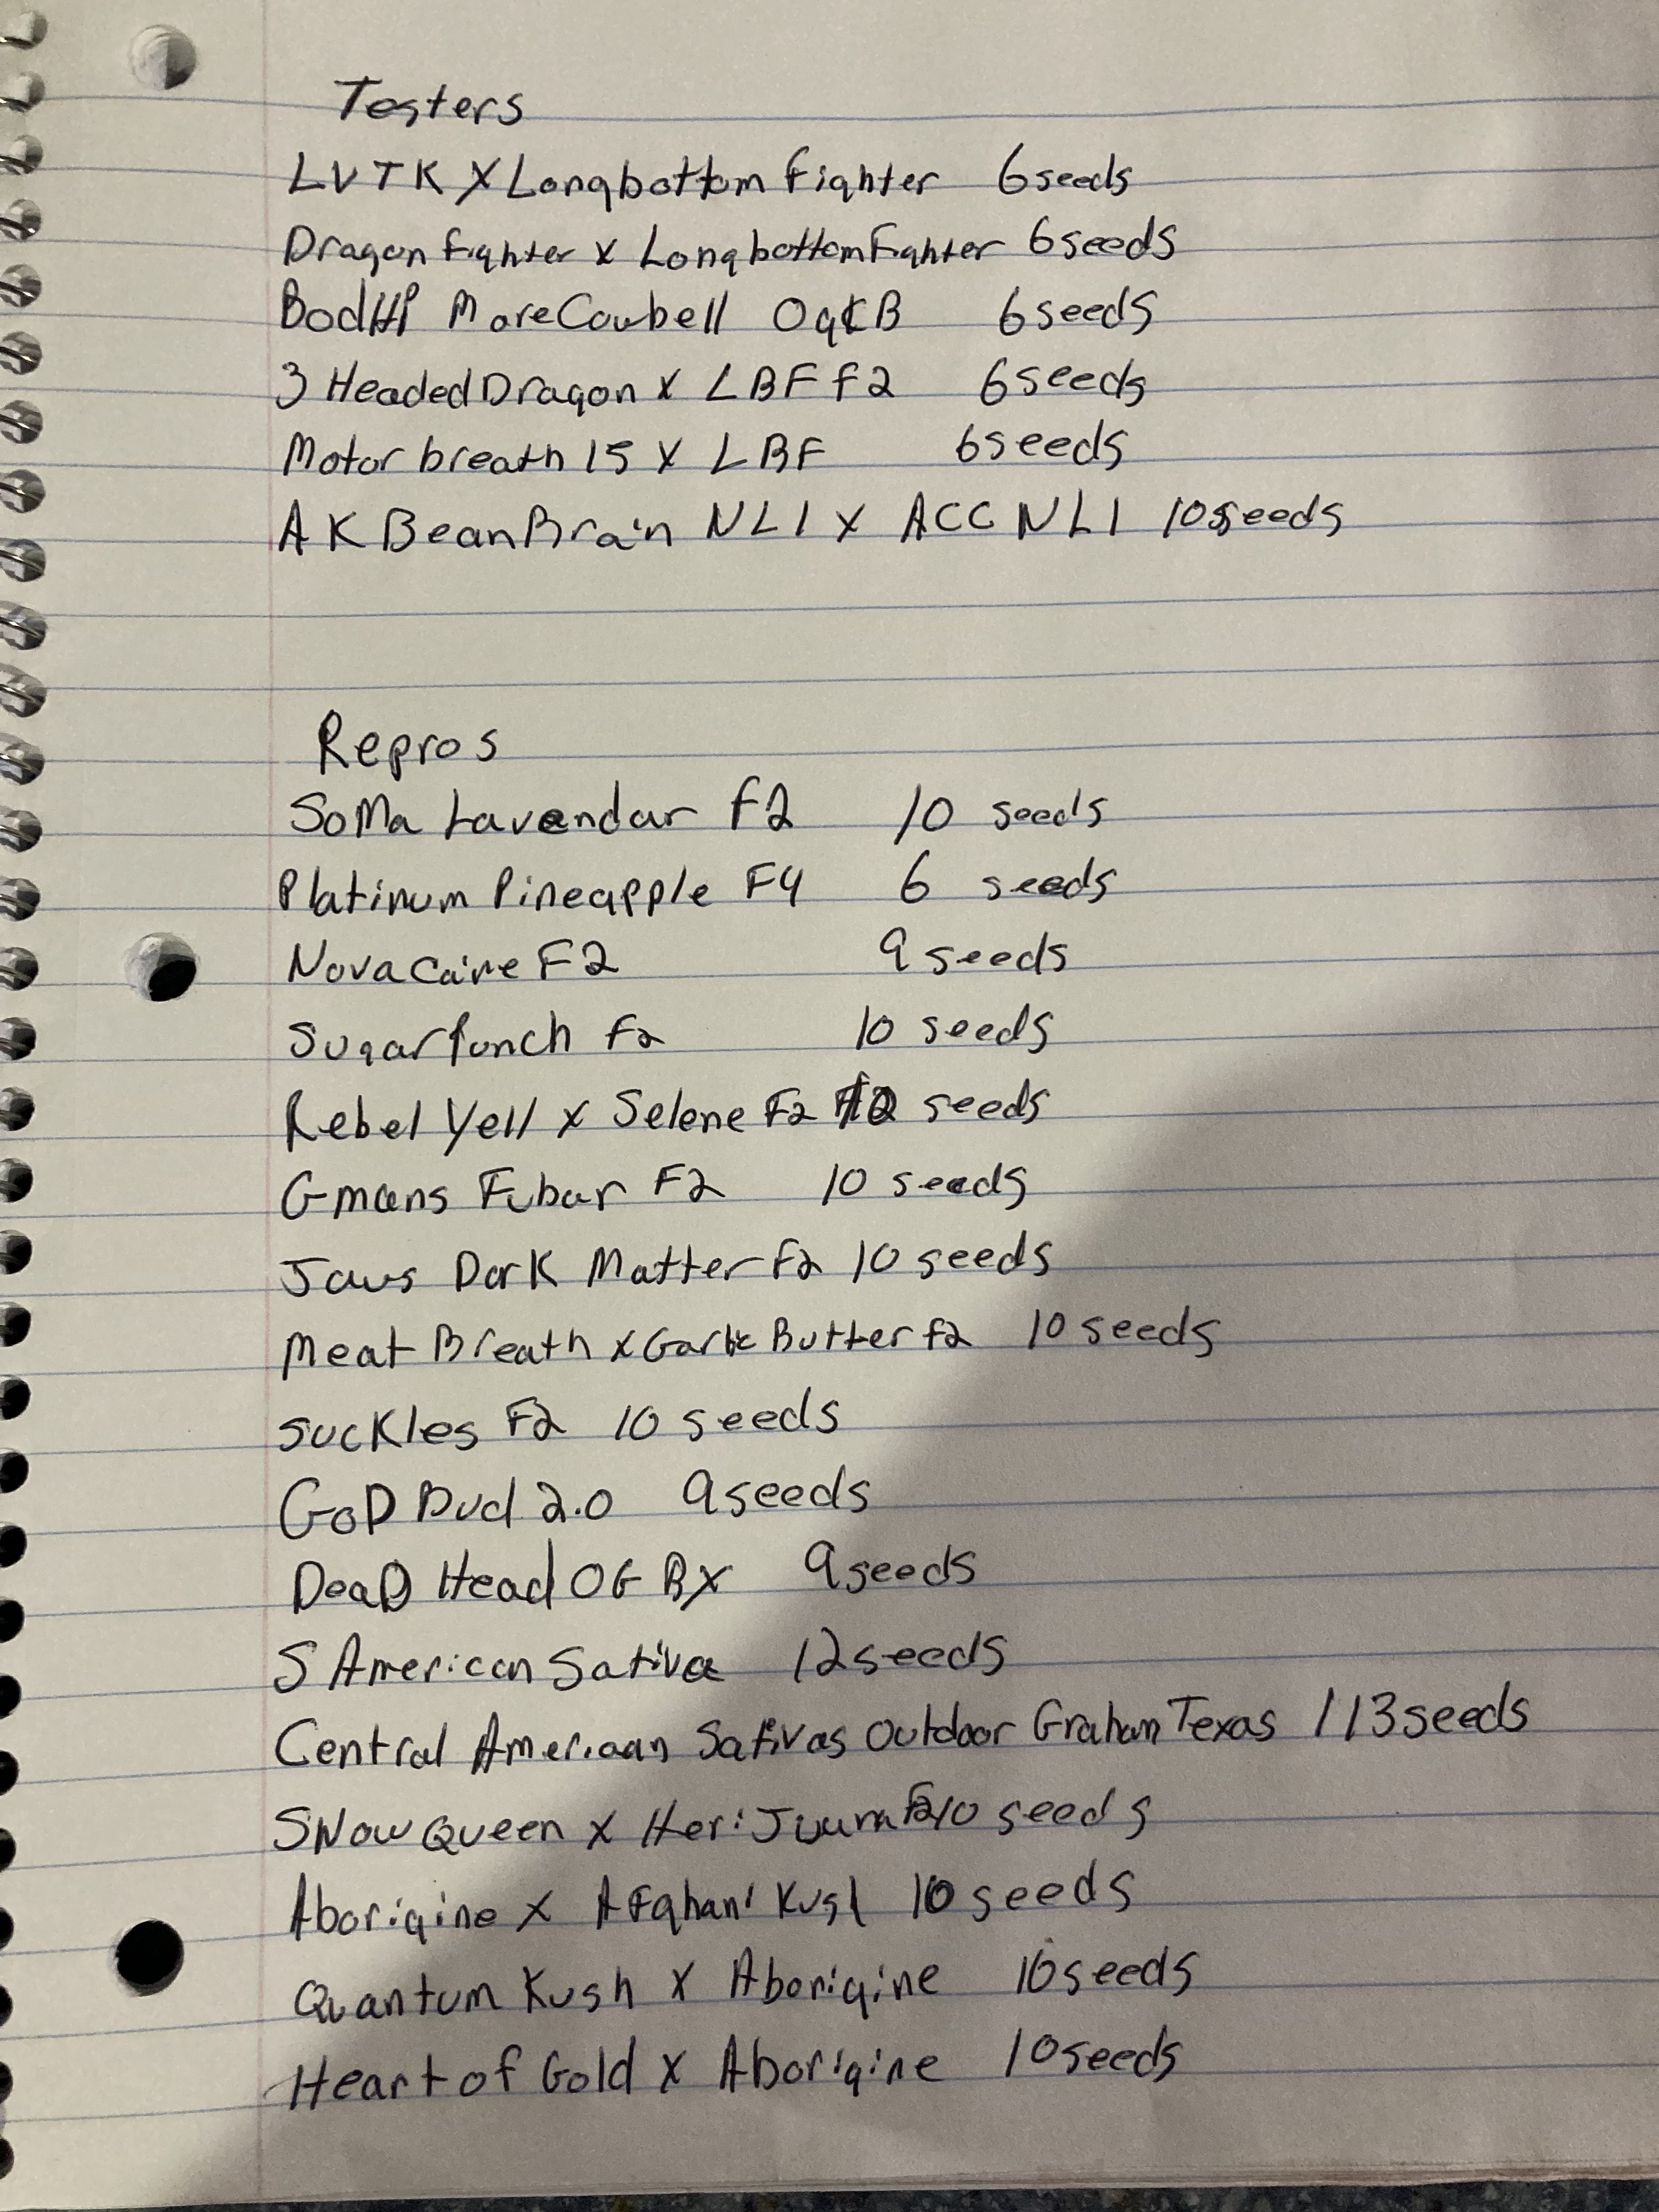 Testers
LVTK X Longbottom Fighter 6 seeds
Dragon fighter x Longbottom Fighter 6 seeds
BodHi More Cowbell OgKB 6 seeds
3 Headed Dragon x LBF f2 6 seeds
Motor breath 15 x LBF 6 seeds
AK Bean Brain NL1 x ACC NL1 10 seeds
Repros
SoMa Lavendar F2 10 seeds
Platinum Pineapple F4 6 seeds
Nova Caine F2 9 seeds
Sugar Punch F2 10 seeds
Rebel Yell x Selene F2 10 seeds
Gmans Fubar F2 10 seeds
Jaws Dark Matter F2 10 seeds
Meat Breath x Garlic Butter f2 10 seeds
suckles F2 10 seeds
GoD Bud 2.0 9 seeds
DeaD Head OG BX 9 seeds
S American Sativa 12 seeds
Central American Sativas Outdoor Graham Texas 113 seeds
SNow Queen x Heri F2 10 seeds
Aborigine x AFghani Kush 10 seeds
Quantum Kush x Aborigine 10 seeds
Heart of Gold x Aborigine 10 seeds